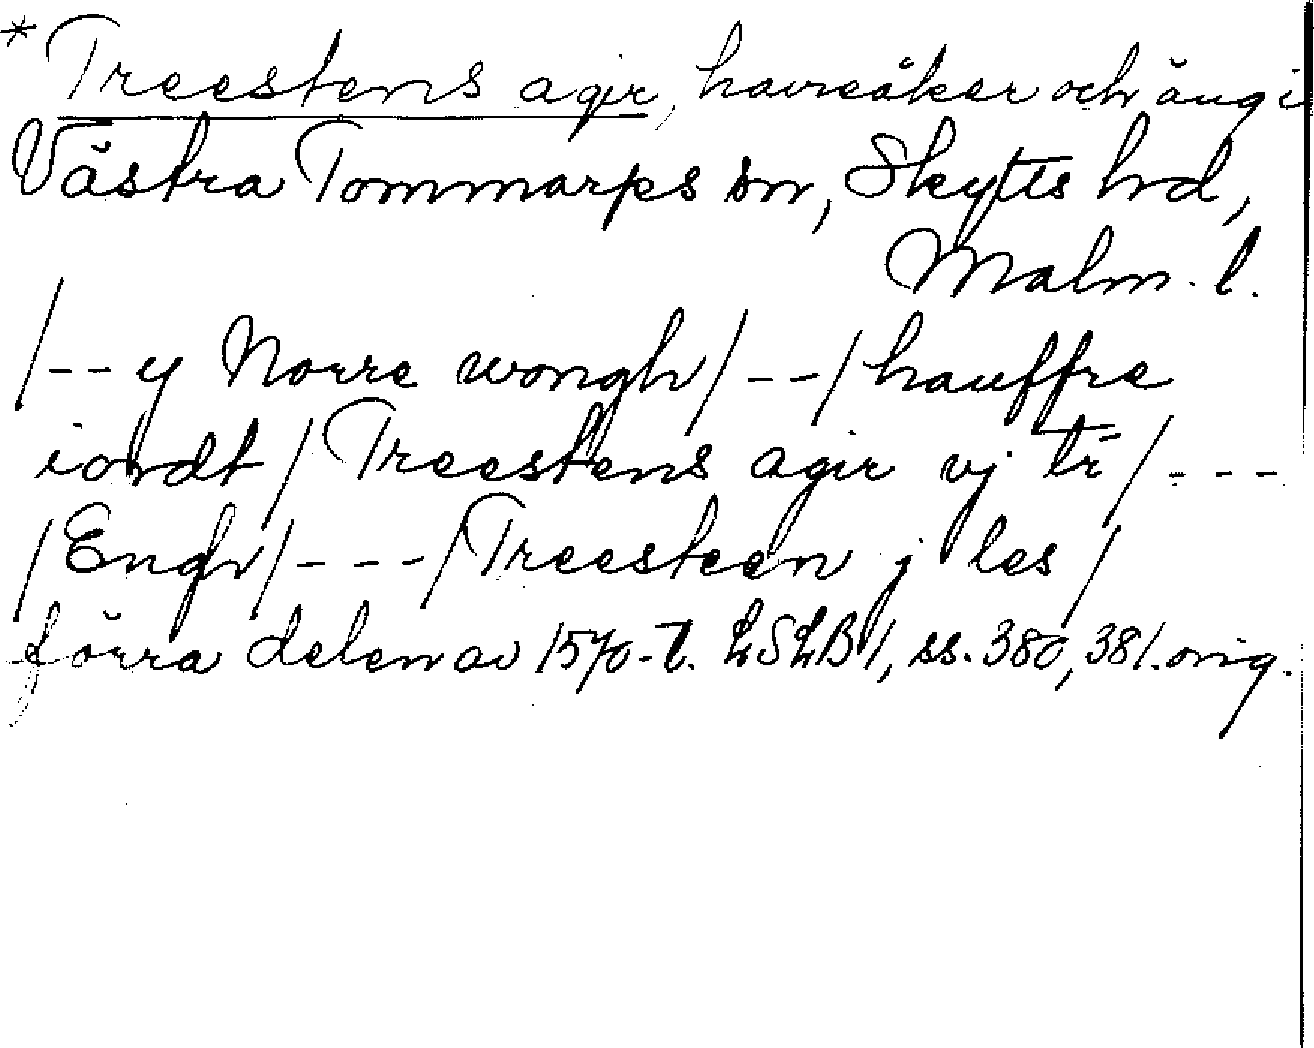 * Treestens agir, havreåker och äng i
Västra Tommarps sn, Skytts hd,
Malm. l.
/--y Norre wongh/--/hauffre
iordt/Treestens agir vj tī/---
/Engh/---/Treesteen j les/
förra delen av 1570-t. LSLB1, ss. 380, 381. orig.